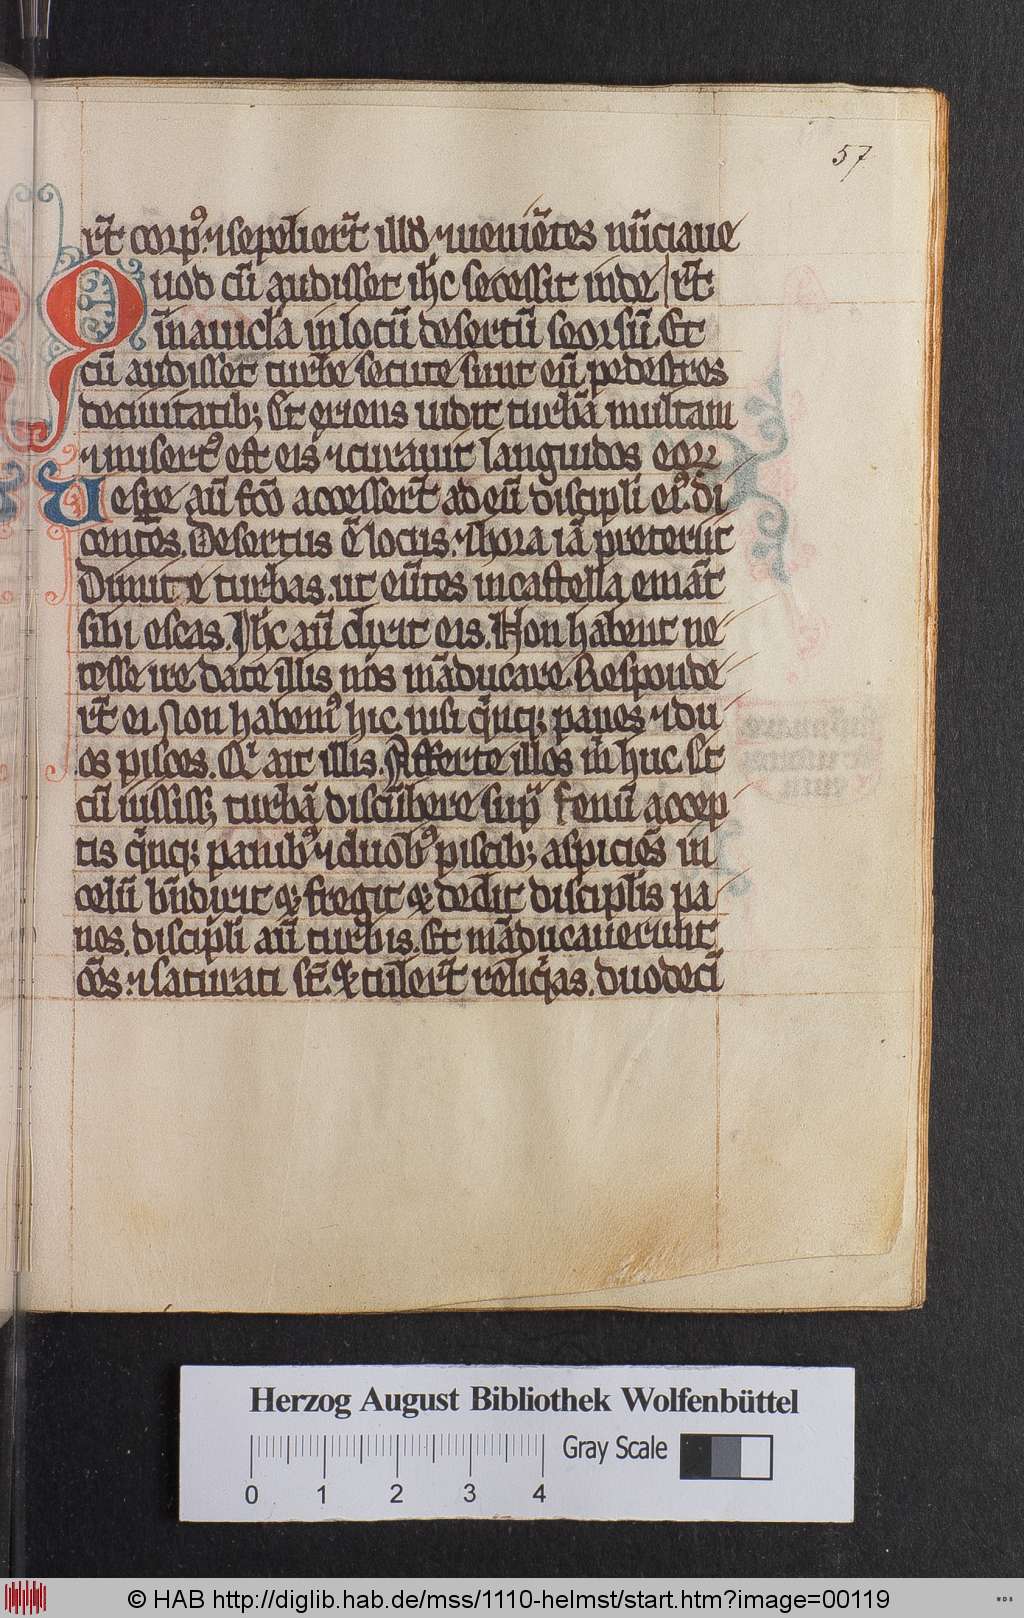 57
rt̄ corp⁹. ⁊ sepeliert̄ illđ. ⁊ ueniētes nūciaue
Quod cū audisset ih̄c secessit inde / rt̄
ī nauicl̄a in locū desertū seorsū. Et
cū audisset turbe secute sunt eū pedestres
deciuitatib; Et exiens uidit turbā multam
⁊ misert⁹ est eis ⁊ curauit languidos eoꝝ
Uespe aū fc̄o accessert̄ ad eū discipli ei⁹. di
centes. Desertus ē locus. ⁊ hora iā preteriit
Dimitte turbas. ut eūtes in castella emāt
sibi escas. Ih̄c aū dixit eis. Non habent ne
cesse ire date illis uos māducare. Responde
rt̄ ei. Non habem⁹ hic nisi qͥnq; panes ⁊ du
os pisces. Qͥ ait illis. Afferte illos m̄ huc. Et
cū iussiss; turbā discūbere sup̄ fenū accep
tis qͥnq; panib⁹ ⁊ duob⁹ piscib; aspiciēs in
celū bn̄dixit ⁊ fregit ⁊ dedit disciplis pa
nes. discipli aū turbis. Et māducauerunt
oēs. ⁊ saturati st̄. ⁊ tulert̄ reliqͥas. duodecī
Herzog August Bibliothek Wolfenbüttel
Gray Scale
0 1 2 3 4
© HAB http://diglib.hab.de/mss/1110-helmst/start.htm?image=00119